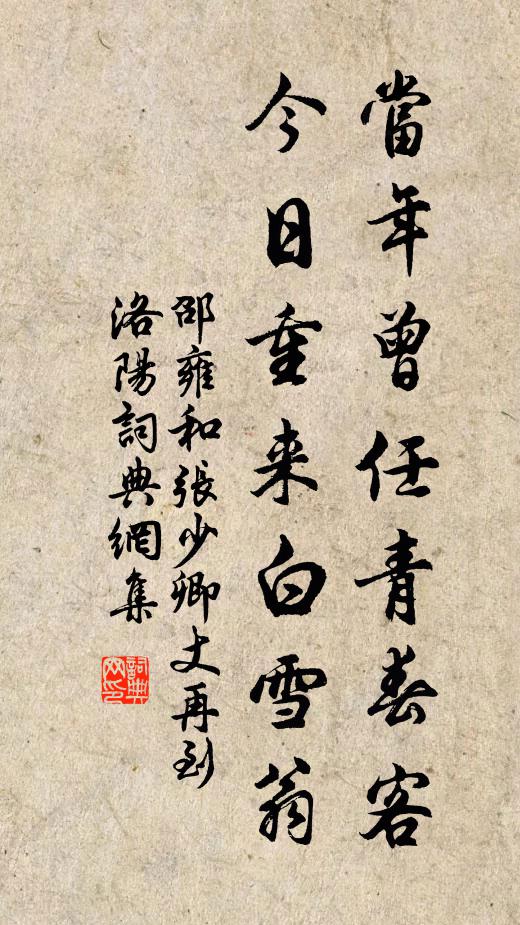 當年曾任青春客
今日重来白雪翁
邵雍和張少卿丈再到
洛陽詞典網集
詞典
网印